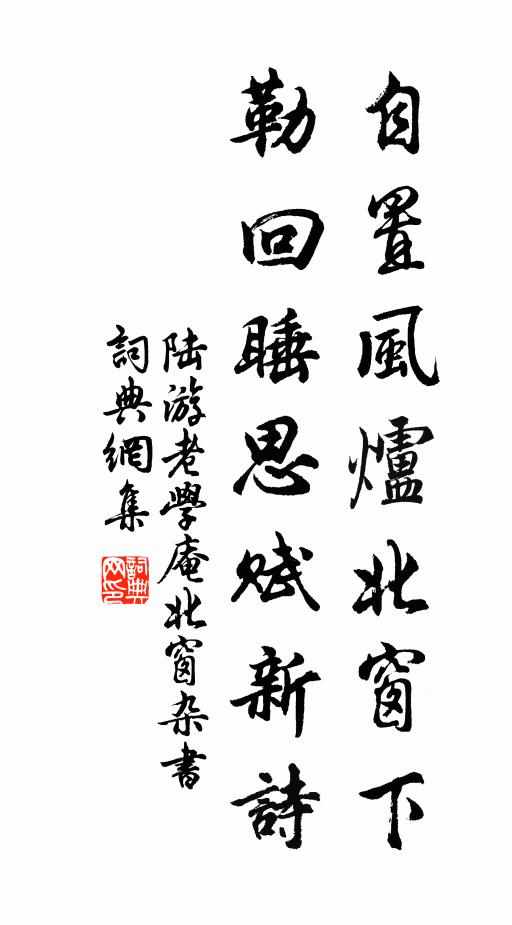 自置風爐北窗下
勒回睡思賦新詩
陆游老學庵北窗杂書
詞典網集
詞典网印